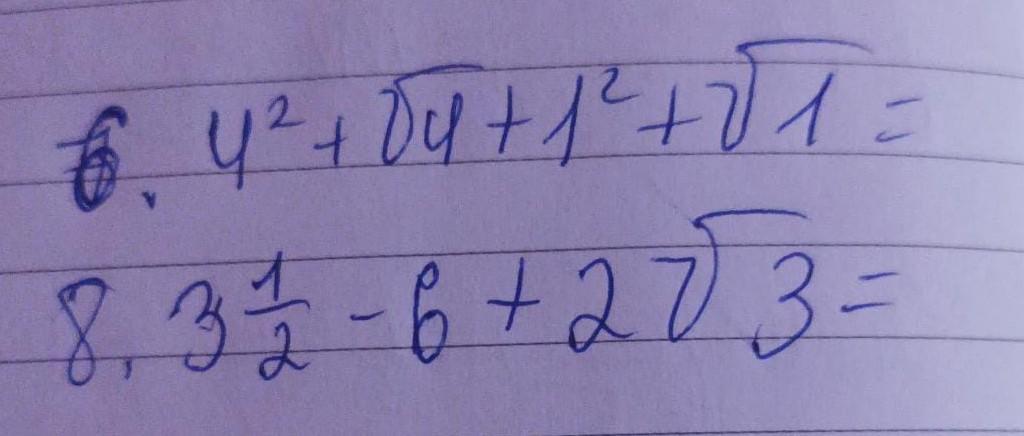 6. 4² + √4 + 1² + √1 =
8. 3 1/2 - 6 + 2√3 =